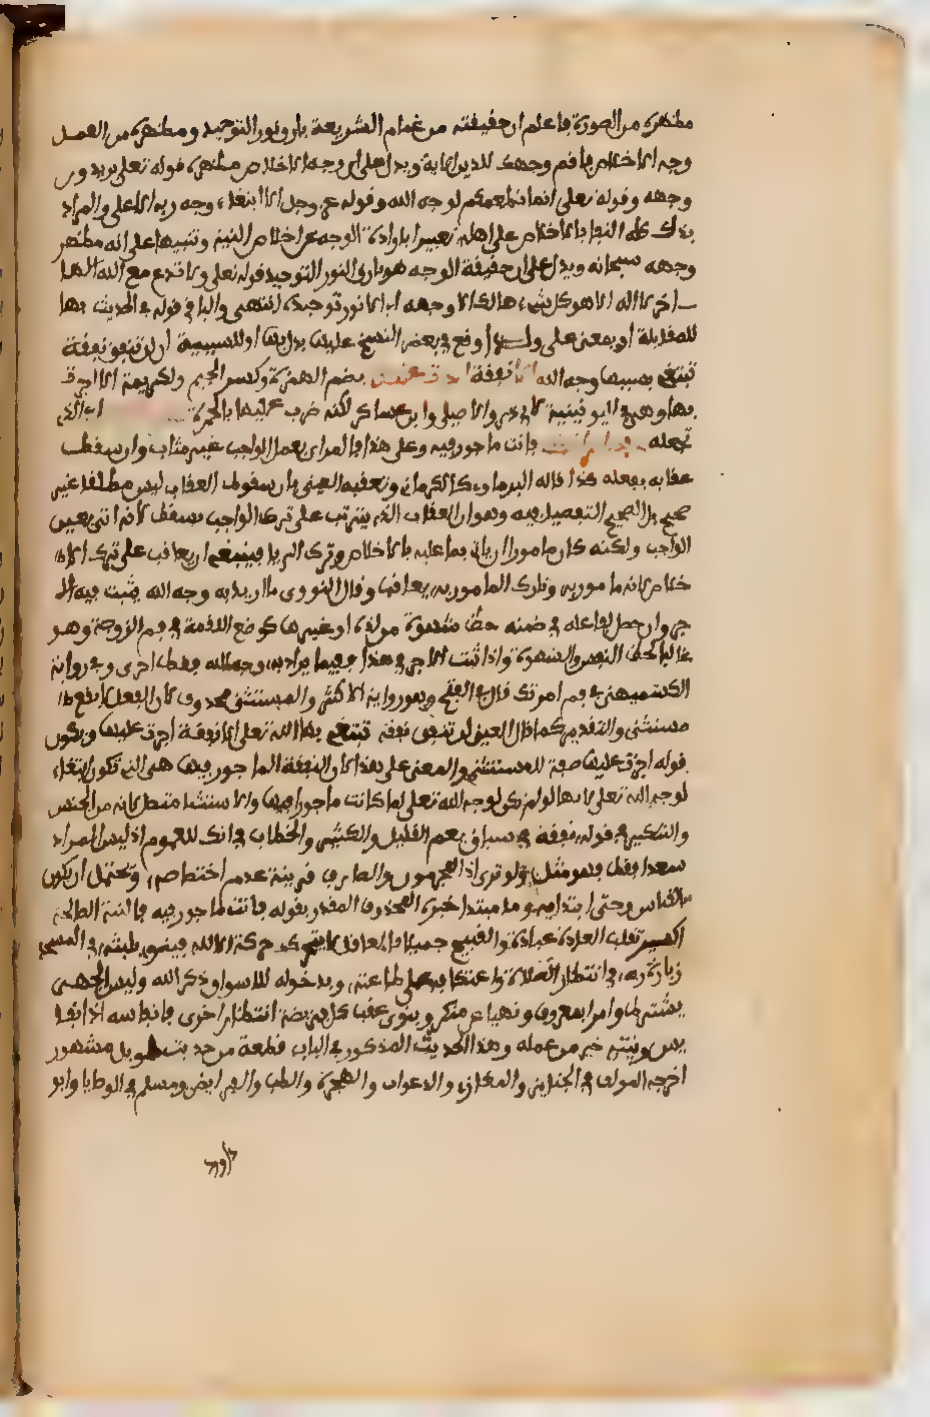 مظهره من الصورة فاعلم ان حقيقته من غمام الشريعة بارق نور التوحيد ومظهره من العمل
وجه الاخلاص فاقم وجهك للدين الاية ويدل على ان وجه الاخلاص مظهره قوله تعلى يريدون
وجهه وقوله تعلى انما نطعمكم لوجه الله وقوله عز وجل الا ابتغاء وجه ربه الاعلى والمراد
بذلك كله الثناء بالاخلاص على اهله تعبيرا بارادة الوجه عن اخلاص النية وتنبيها على انه مظهر
وجهه سبحانه ويدل على ان حقيقة الوجه هو بارق النور التوحيد قوله تعلى ولا تدع مع الله الها
اخر لا اله الا هو كل شيء هالك الا وجهه اي الا نور توحيده انتهى والبا في قوله في الحديث بها
للمقابلة او بمعنى على ولهذا وقع في بعض النسخ عليها بدل بها او للسببية اي لن تنفق نفقة
تبتغي بسببها وجه الله الا نفقة اجرت بضم الهمزة وكسر الجيم ولكريمة الا اجرت
بها وهي في اليونينية لابي ذر والاصيلي وابن عساكر لكنه ضرب عليها بالحمرة اي الذي
تجعله فانت ماجور فيه وعلى هذا فالمراءي بعمل الواجب غير مثاب وان سقط
عقابه بفعله كذا قاله البرماوي كالكرماني وتعقبه العيني بان سقوط العقاب ليس مطلقا غير
صحيح بل الصحيح التفصيل فيه وهو ان العقاب الذي يترتب على ترك الواجب يسقط لانه اتى بعين
الواجب ولكنه كان مامورا ان ياتي بما عليه بالاخلاص وترك الريا فينبغي ان يعاقب على ترك الا
خلاص لانه مامور به وتارك المامور به يعاقب وقال النووي ما اريد به وجه الله يثبت فيه الا
جر وان حصل لفاعله في ضمنه حظ شهوة من لذة او غيرها كوضع اللقمة في فم الزوجة وهو
غالبا لحظ النفس والشهوة واذا ثبت الاجر في هذا ففيما يراد به وجه الله فقط احرى وفي رواية
الكشميهني في فم امرتك قال في الفتح وهو رواية الاكثر والمستثنى محذوف لان الفعل لا يقع
مستثنى والتقدير كما قال العيني لن تنفق نفقة تبتغي بها الله تعلى الا نفقة اجرت عليها ويكون
قوله اجرت عليها صفة للمستثنى والمعنى على هذا لان النفقة الماجور فيها هي التي تكون ابتغاء
لوجه الله تعلى لانها لو لم تكن لوجه الله تعلى لما كانت ماجورا فيها والاستثنا متصل لانه من الجنس
والتنكير في قوله نفقة في سياق يعم القليل والكثير والخطاب في انك للعموم اذ ليس المراد
سعدا فقط فهو مثل ولو ترى اذ المجرمون والصارف قرينة عدم اختصاصه ويحتمل ان يكون
بالقياس وحتى ابتدايية وما مبتدا خبره المحذوف المقدر بقوله فانت ماجور فيه فالنية الصالحة
اكسير تقلب العادة عبادة والقبيح جميلا فالعاقل لا يتحرك حركة الا لله فينوي بمكثه في المسجد
زيارة ربه في انتظار الصلاة واعتكافه على طاعته وبدخوله للاسواق ذكر الله وليس الجهر
يشترط وامرا بمعروف ونهيا عن منكر وينوي عقب كل فريضة انتظار اخرى فانفاسه اذا نفا
يس ونيته خير من عمله وهذا الحديث المذكور في الباب قطعة من حديث طويل مشهور
اخرجه المولف في الجنايز والمغازي والدعوات والهجرة والطب والفرايض ومسلم في الوصايا وابو
داود